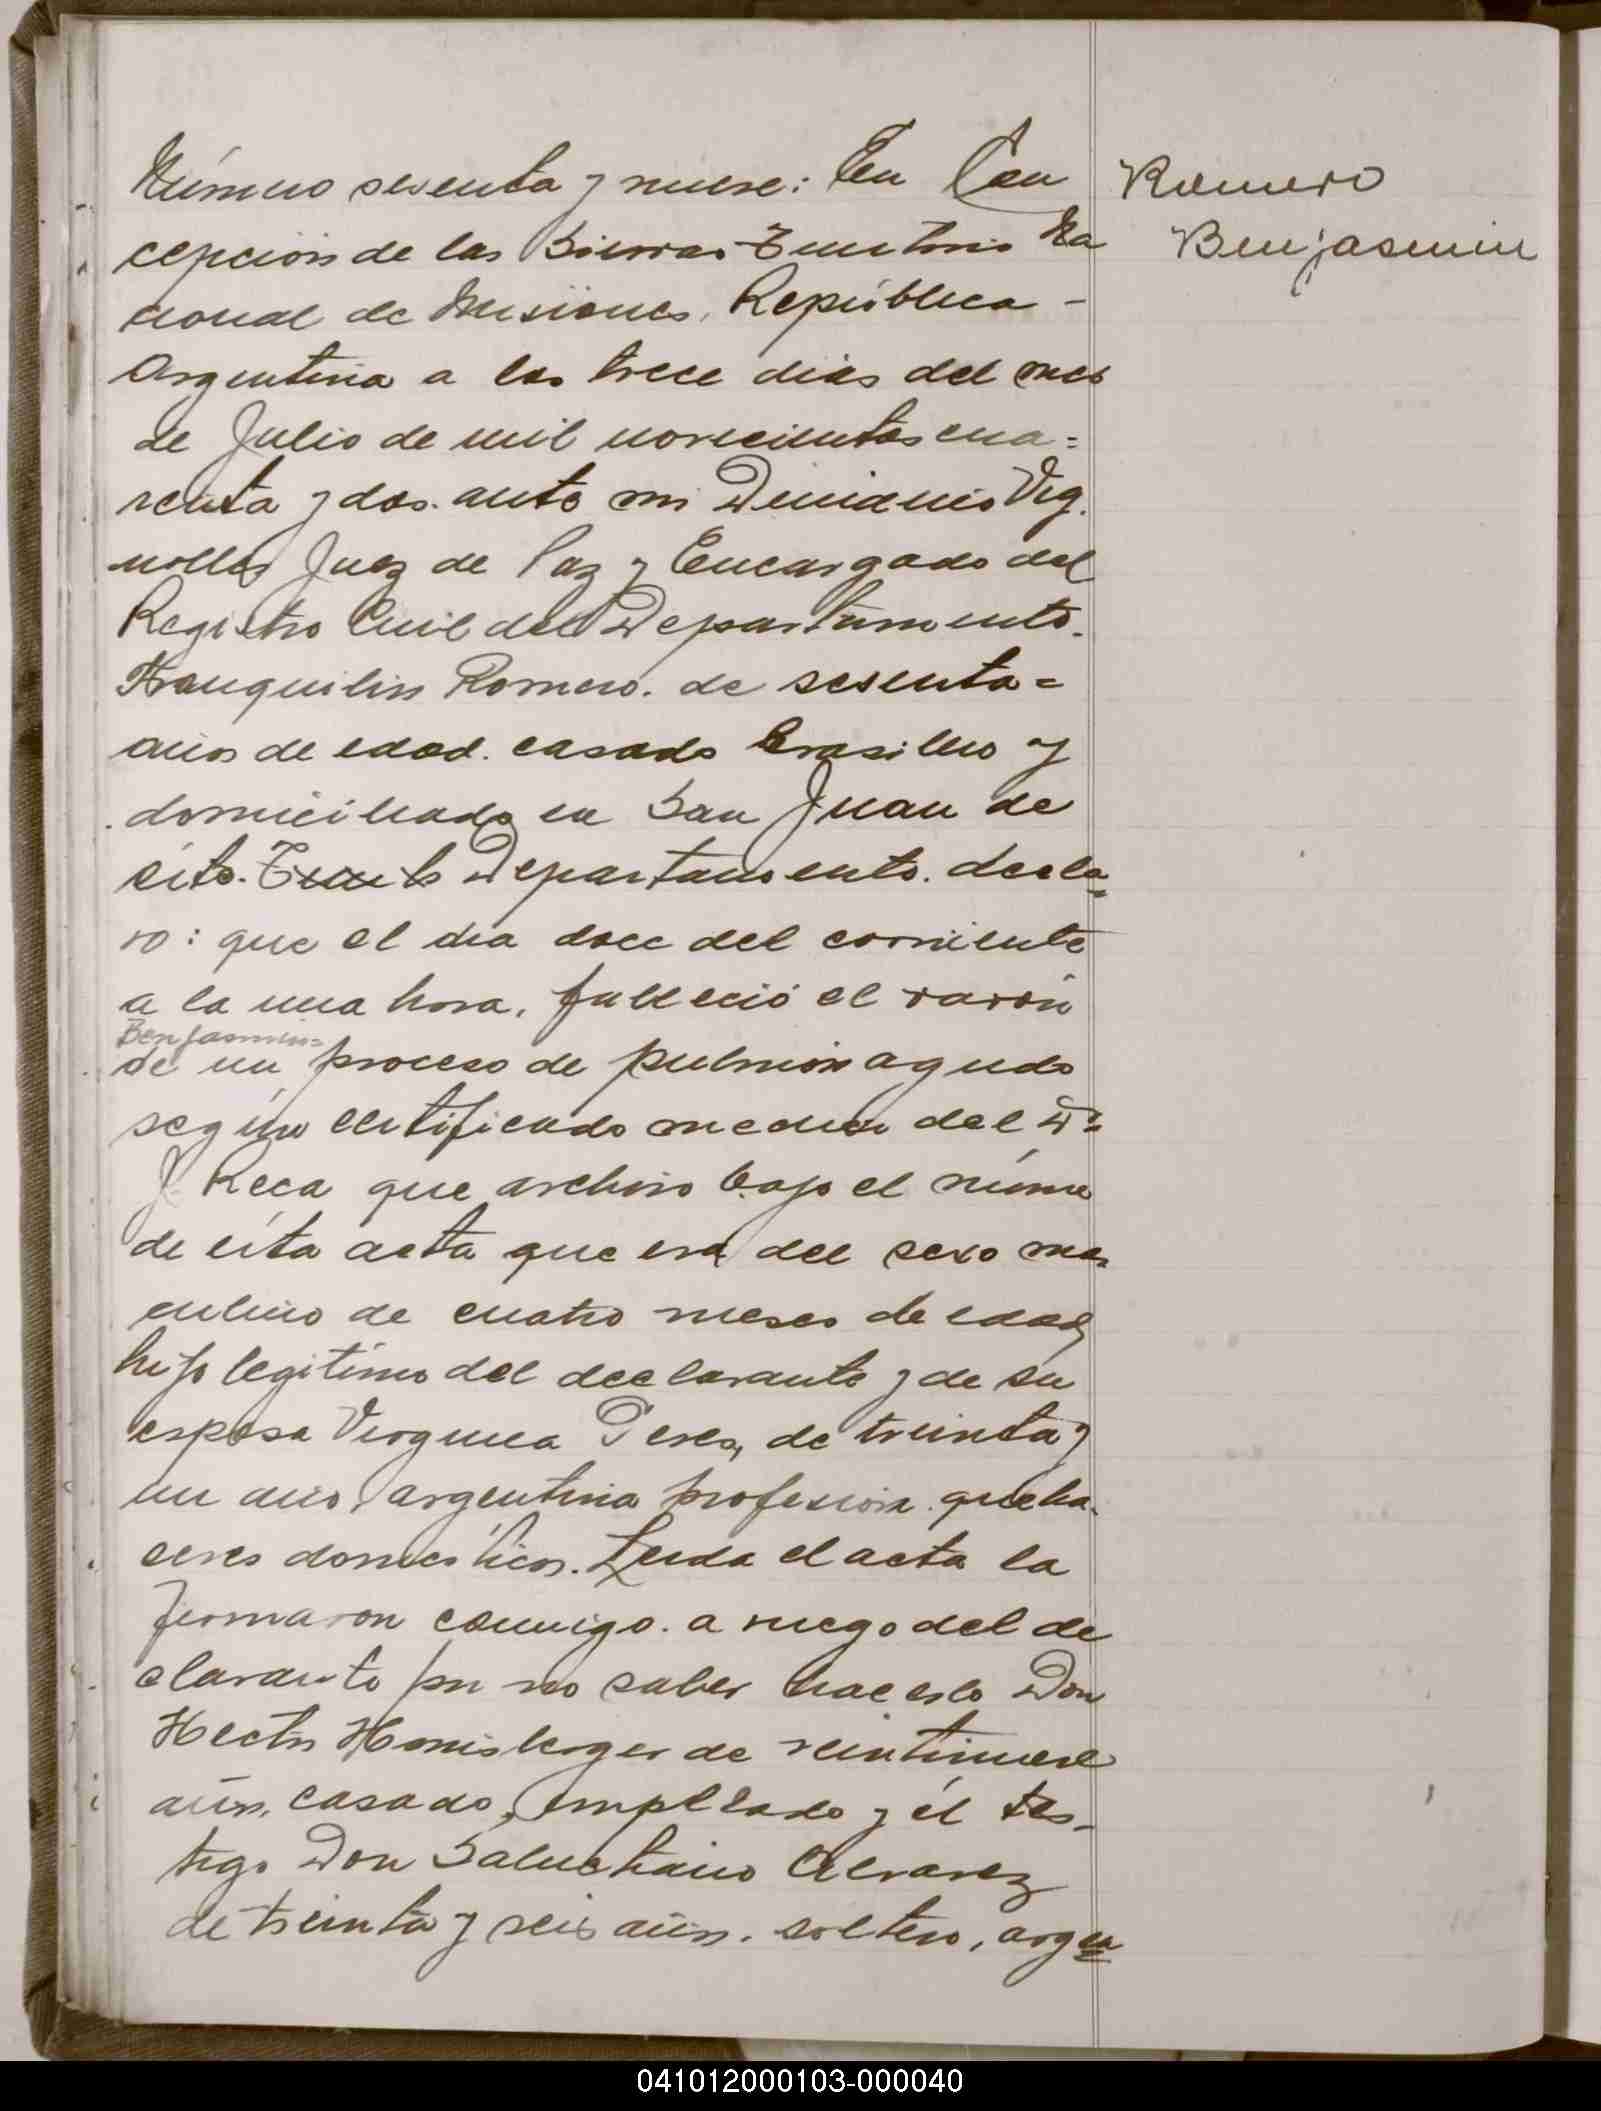 Número sesenta y nueve: En Con
cepción de las Sierras Territorio Na
cional de Misiones, República -
Argentina a los trece dias del mes
de Julio de mil novecientos cua=
renta y dos. ante mi Vig.
nolles Juez de Paz y Encargado del
Registro Civil del Departamento.
Tranquilin Romero. de sesenta=
años de edad. casado brasilero y
domiciliado en San Juan de
este. Departamento. decla=
ro: que el dia doce del corriente
a la una hora, falleció el varón
Benjasmin=
de un proceso de pulmón agudo
según certificado medico del Dr=
J. Reca que archivo bajo el número
de esta acta que era del sexo mas=
culino de cuatro meses de edad,
hijo legitimo del declarante y de su
esposa Virginea Peres, de treinta y
un año, argentina profesión. queha-
ceres domesticos. Leida el acta la
firmaron conmigo. a ruego del de
clarante por no saber hacerlo Don
Hector de veintinueve
años, casado, empleado y él tes-
tigo Don Saluctiano Alvarez
de treinta y seis años. soltero, argen
Romero
Benjasmin
041012000103-000040